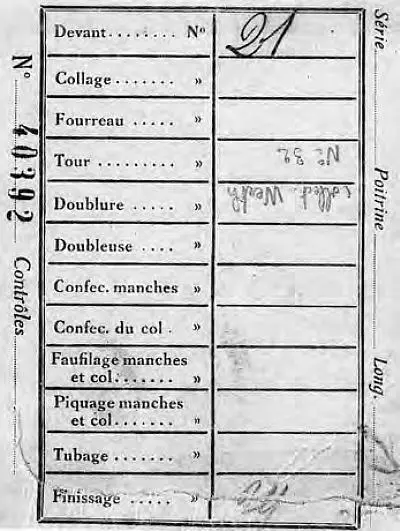 Devant........ No 21
Collage....... »
Fourreau ..... »
Tour ......... »
No 32
Doublure ..... »
Collect. Werth
Doubleuse .... »
Confec. manches »
Confec. du col . »
Faufilage manches
et col....... »
Piquage manches
et col....... »
Tubage ....... »
Finissage ..... »
No 40392 Contrôles
Série Poitrine Long.